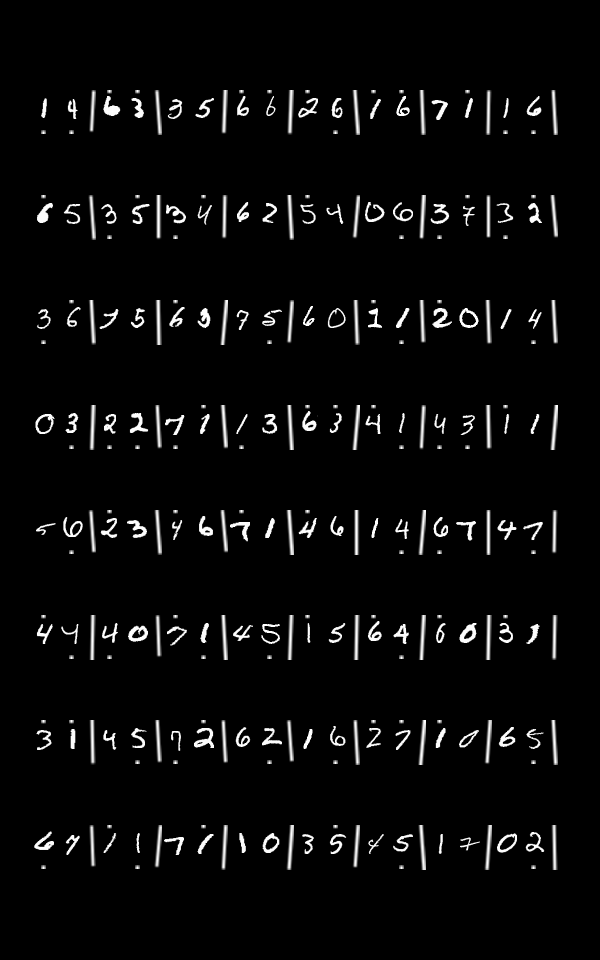 1 4 | 6 3 | 3 5 | 6 6 | 2 6 | 1 6 | 7 1 | 1 6 |
6 5 | 3 5 | 3 4 | 6 2 | 5 4 | 0 6 | 3 7 | 3 2 |
3 6 | 7 5 | 6 3 | 7 5 | 6 0 | 1 1 | 2 0 | 1 4 |
0 3 | 2 2 | 7 1 | 1 3 | 6 3 | 4 1 | 4 3 | 1 1 |
5 6 | 2 3 | 4 6 | 7 1 | 4 6 | 1 4 | 6 7 | 4 7 |
4 4 | 4 0 | 7 1 | 4 5 | 1 5 | 6 4 | 6 0 | 3 1 |
3 1 | 4 5 | 7 2 | 6 2 | 1 6 | 2 7 | 1 0 | 6 5 |
6 7 | 1 1 | 7 1 | 1 0 | 3 5 | 4 5 | 1 7 | 0 2 |